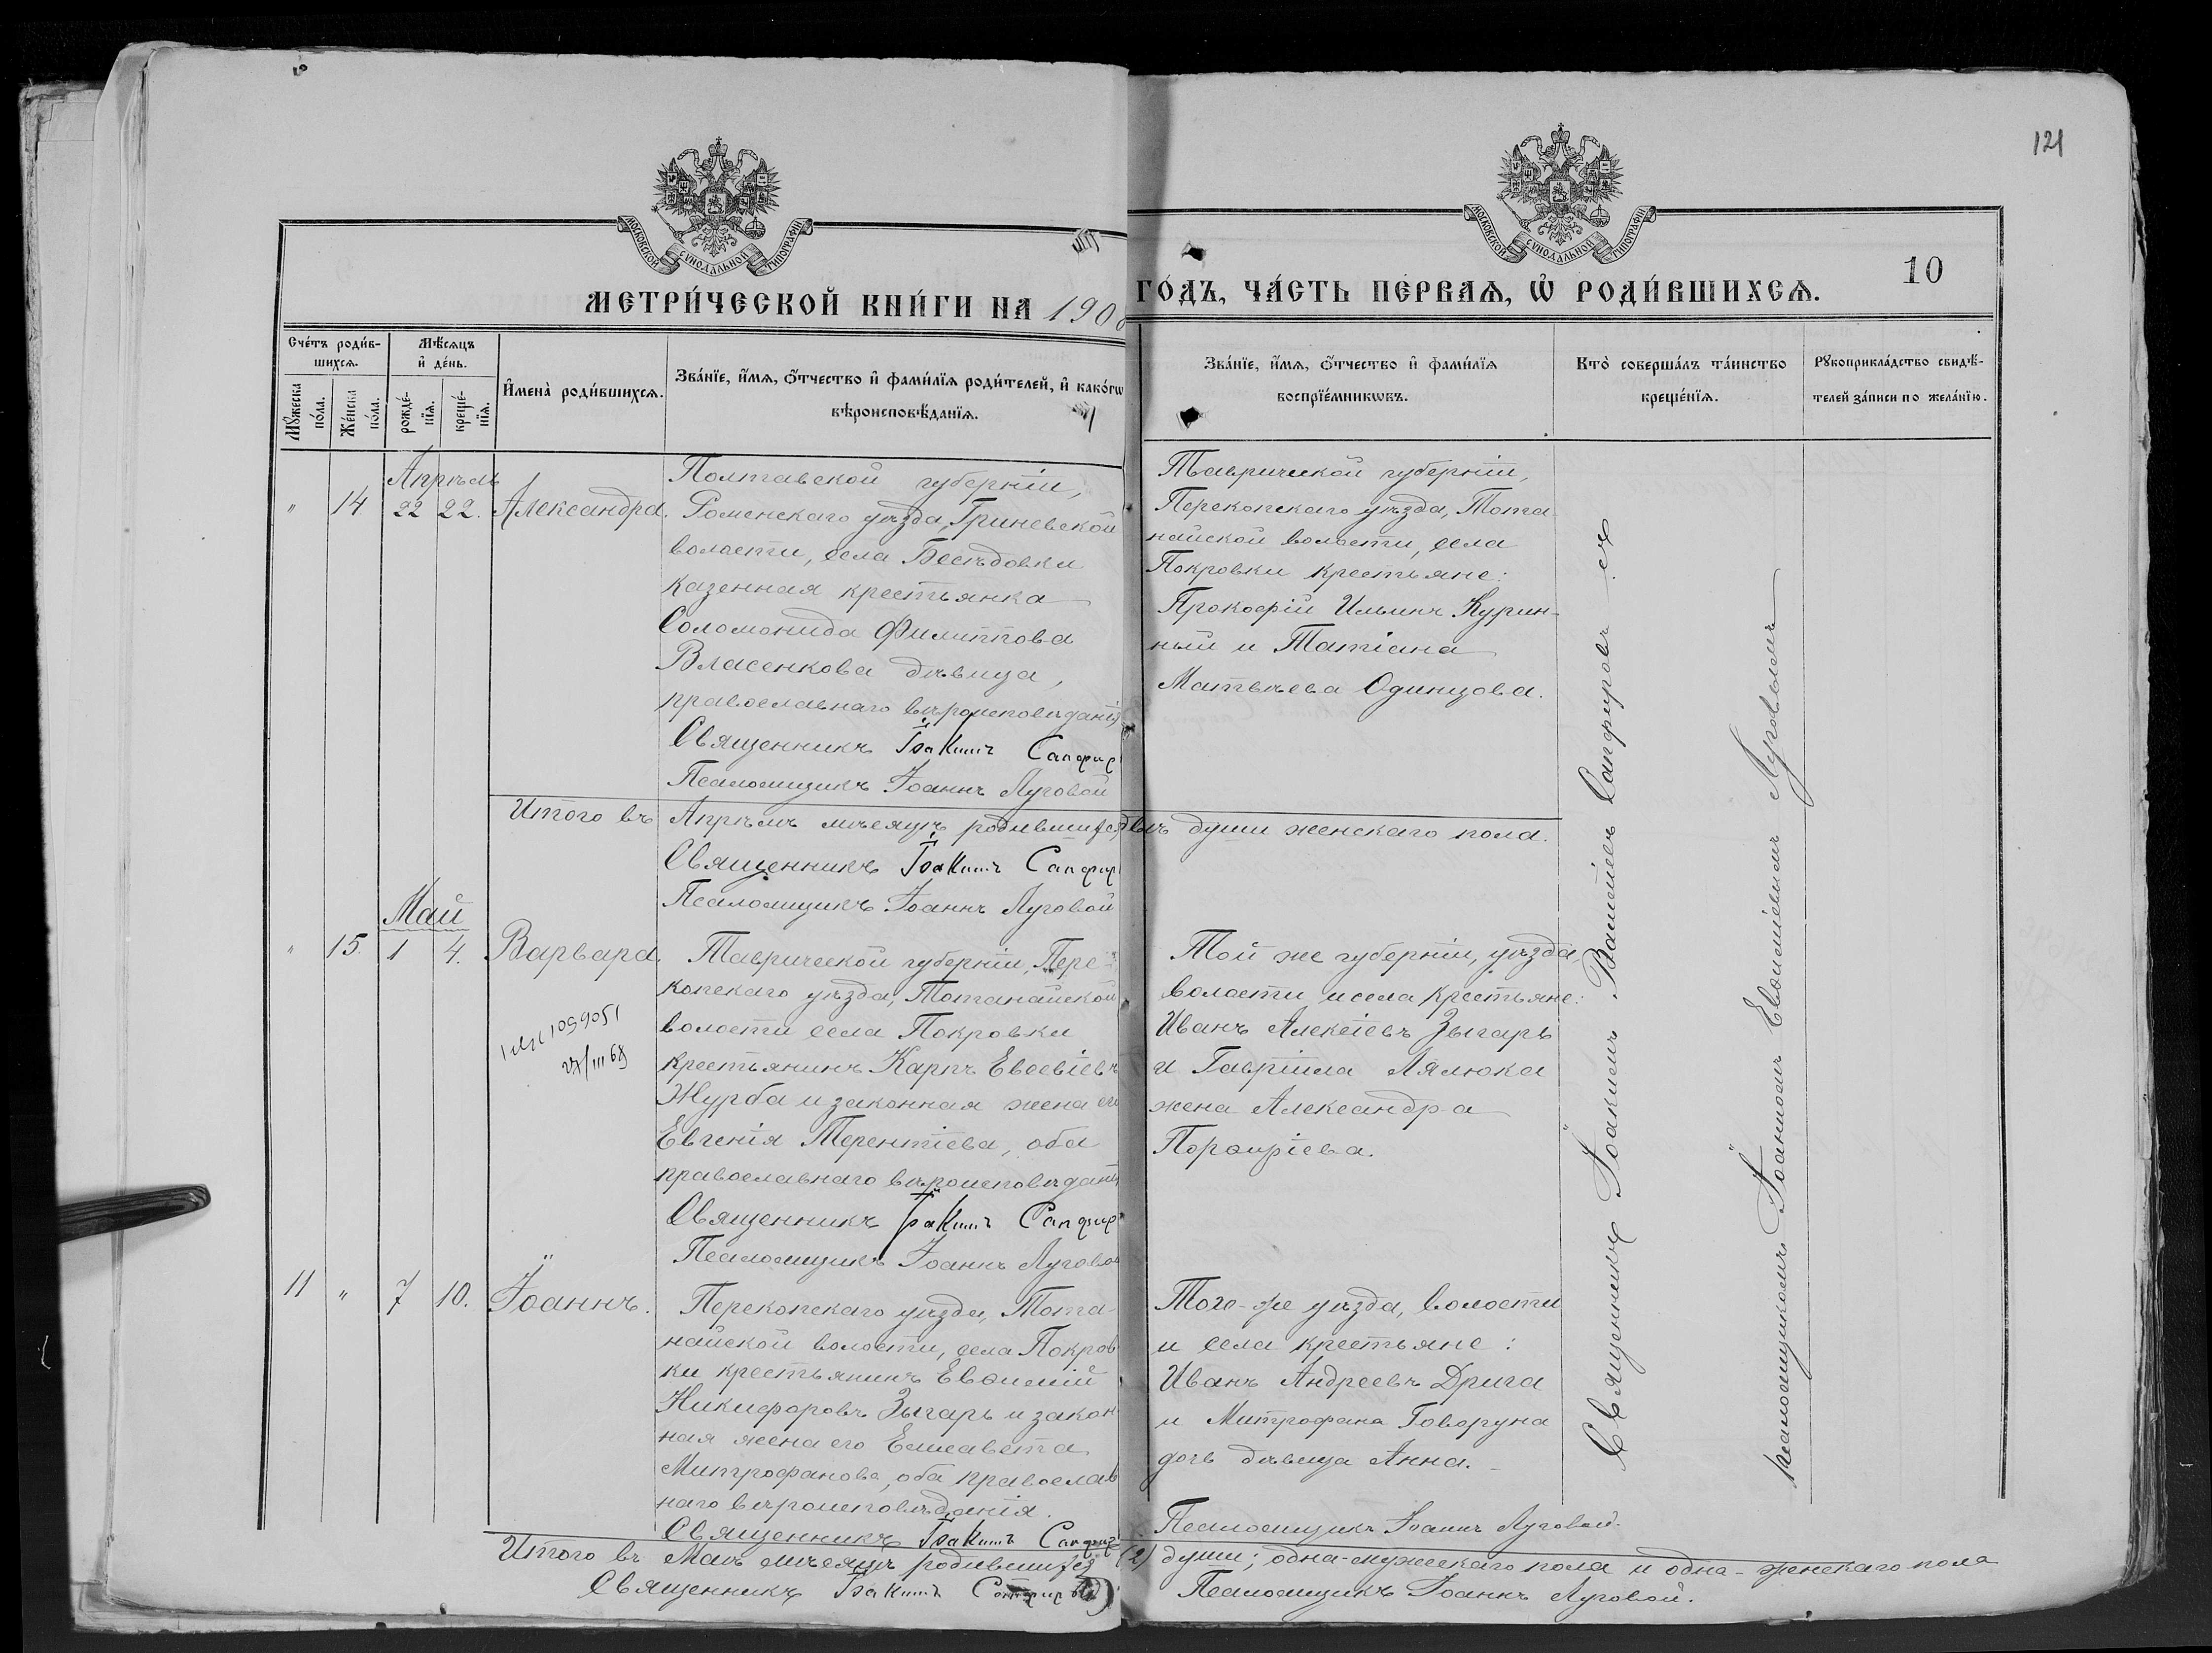 121
10
МОСКОВСКОЙ СѴНОДАЛЬНОЙ ТИПОГРАФІИ
МОСКОВСКОЙ СѴНОДАЛЬНОЙ ТИПОГРАФІИ
МЕТРИ́ЧЕСКОЙ КНИ́ГИ НА 190 ГО́ДЪ, ЧА́СТЬ ПЕ́РВАѦ, Ѡ РОДИ́ВШИХСѦ.
Сче́тъ роди́в-
шихсѧ.
Мꙋ́жеска по́ла.
Же́нска по́ла.
Мѣ́сѧцъ
и҆ де́нь.
рожде́-
нїѧ.
креще́-
нїѧ.
И҆мена̀ роди́вшихсѧ.
Зва́нїе, и҆́мѧ, ѻ҆́тчество и҆ фами́лїѧ роди́телей, и҆ како́гѡ
вѣроисповѣ́данїѧ.
Зва́нїе, и҆́мѧ, ѻ҆́тчество и҆ фами́лїѧ
воспрїе́мникѡвъ.
Кто̀ соверша́лъ та́инство
креще́нїѧ.
Рꙋкоприкла́дство свидѣ́-
телей за́писи по жела́нїю.
Апрѣль
" 14 22 22. Александра.
Полтавской губерніи,
Роменскаго уѣзда, Гриневской
волости, села Бесѣдовки
казенная крестьянка
Соломонида Филиппова
Власенкова дѣвица,
православнаго вѣроисповѣданія
Священникъ Іоакимъ Сапфир
Псаломщикъ Іоаннъ Луговой
Таврической губерніи,
Перекопскаго уѣзда, Тота-
найской волости, села
Покровки крестьяне:
Прокофій Ильинъ Курин-
ный и Татіана
Матвѣева Одинцова.
Итого въ Апрѣлѣ мѣсяцѣ родившихся двѣ души женскаго пола.
Священникъ Іоакимъ Сапфир
Псаломщикъ Іоаннъ Луговой
Май
" 15. 1 4. Варвара.
Таврической губерніи, Пере-
копскаго уѣзда, Тотанайской
волости села Покровки
крестьянинъ Карпъ Евсевіевъ
Журба и законная жена его
Евгенія Терентіева, оба
православнаго вѣроисповѣдані
Священникъ Іоакимъ Сапфир
Псаломщикъ Іоаннъ Лугово
Той же губерніи, уѣзда,
волости и села крестьяне:
Иванъ Алексіевъ Зыгарь
и Гавріила Лялюка
жена Александра
Порфиріева.
11 " 7 10. Іоаннъ.
Перекопскаго уѣзда, Тота-
найской волости, села Покров
ки крестьянинъ Евѳимій
Никифоровъ Зыгарь и закон
ная жена его Елисавета
Митрофанова, оба православ
наго вѣроисповѣданія.
Священникъ Іоакимъ Сапфир
Того-же уѣзда, волости
и села крестьяне:
Иванъ Андреевъ Дрига
и Митрофана Говоруна
дочь дѣвица Анна.
Псаломщикъ Іоаннъ Луговой.
Итого въ Маѣ мѣсяцѣ родившихся (2) души; одна-мужескаго пола и одна-женскаго пола
Священникъ Іоакимъ
Псаломщикъ Іоаннъ Луговой.
Священникъ Іоакимъ Василіевъ Сапфировъ съ
псаломщикомъ Іоанномъ Евѳиміевымъ Луговымъ